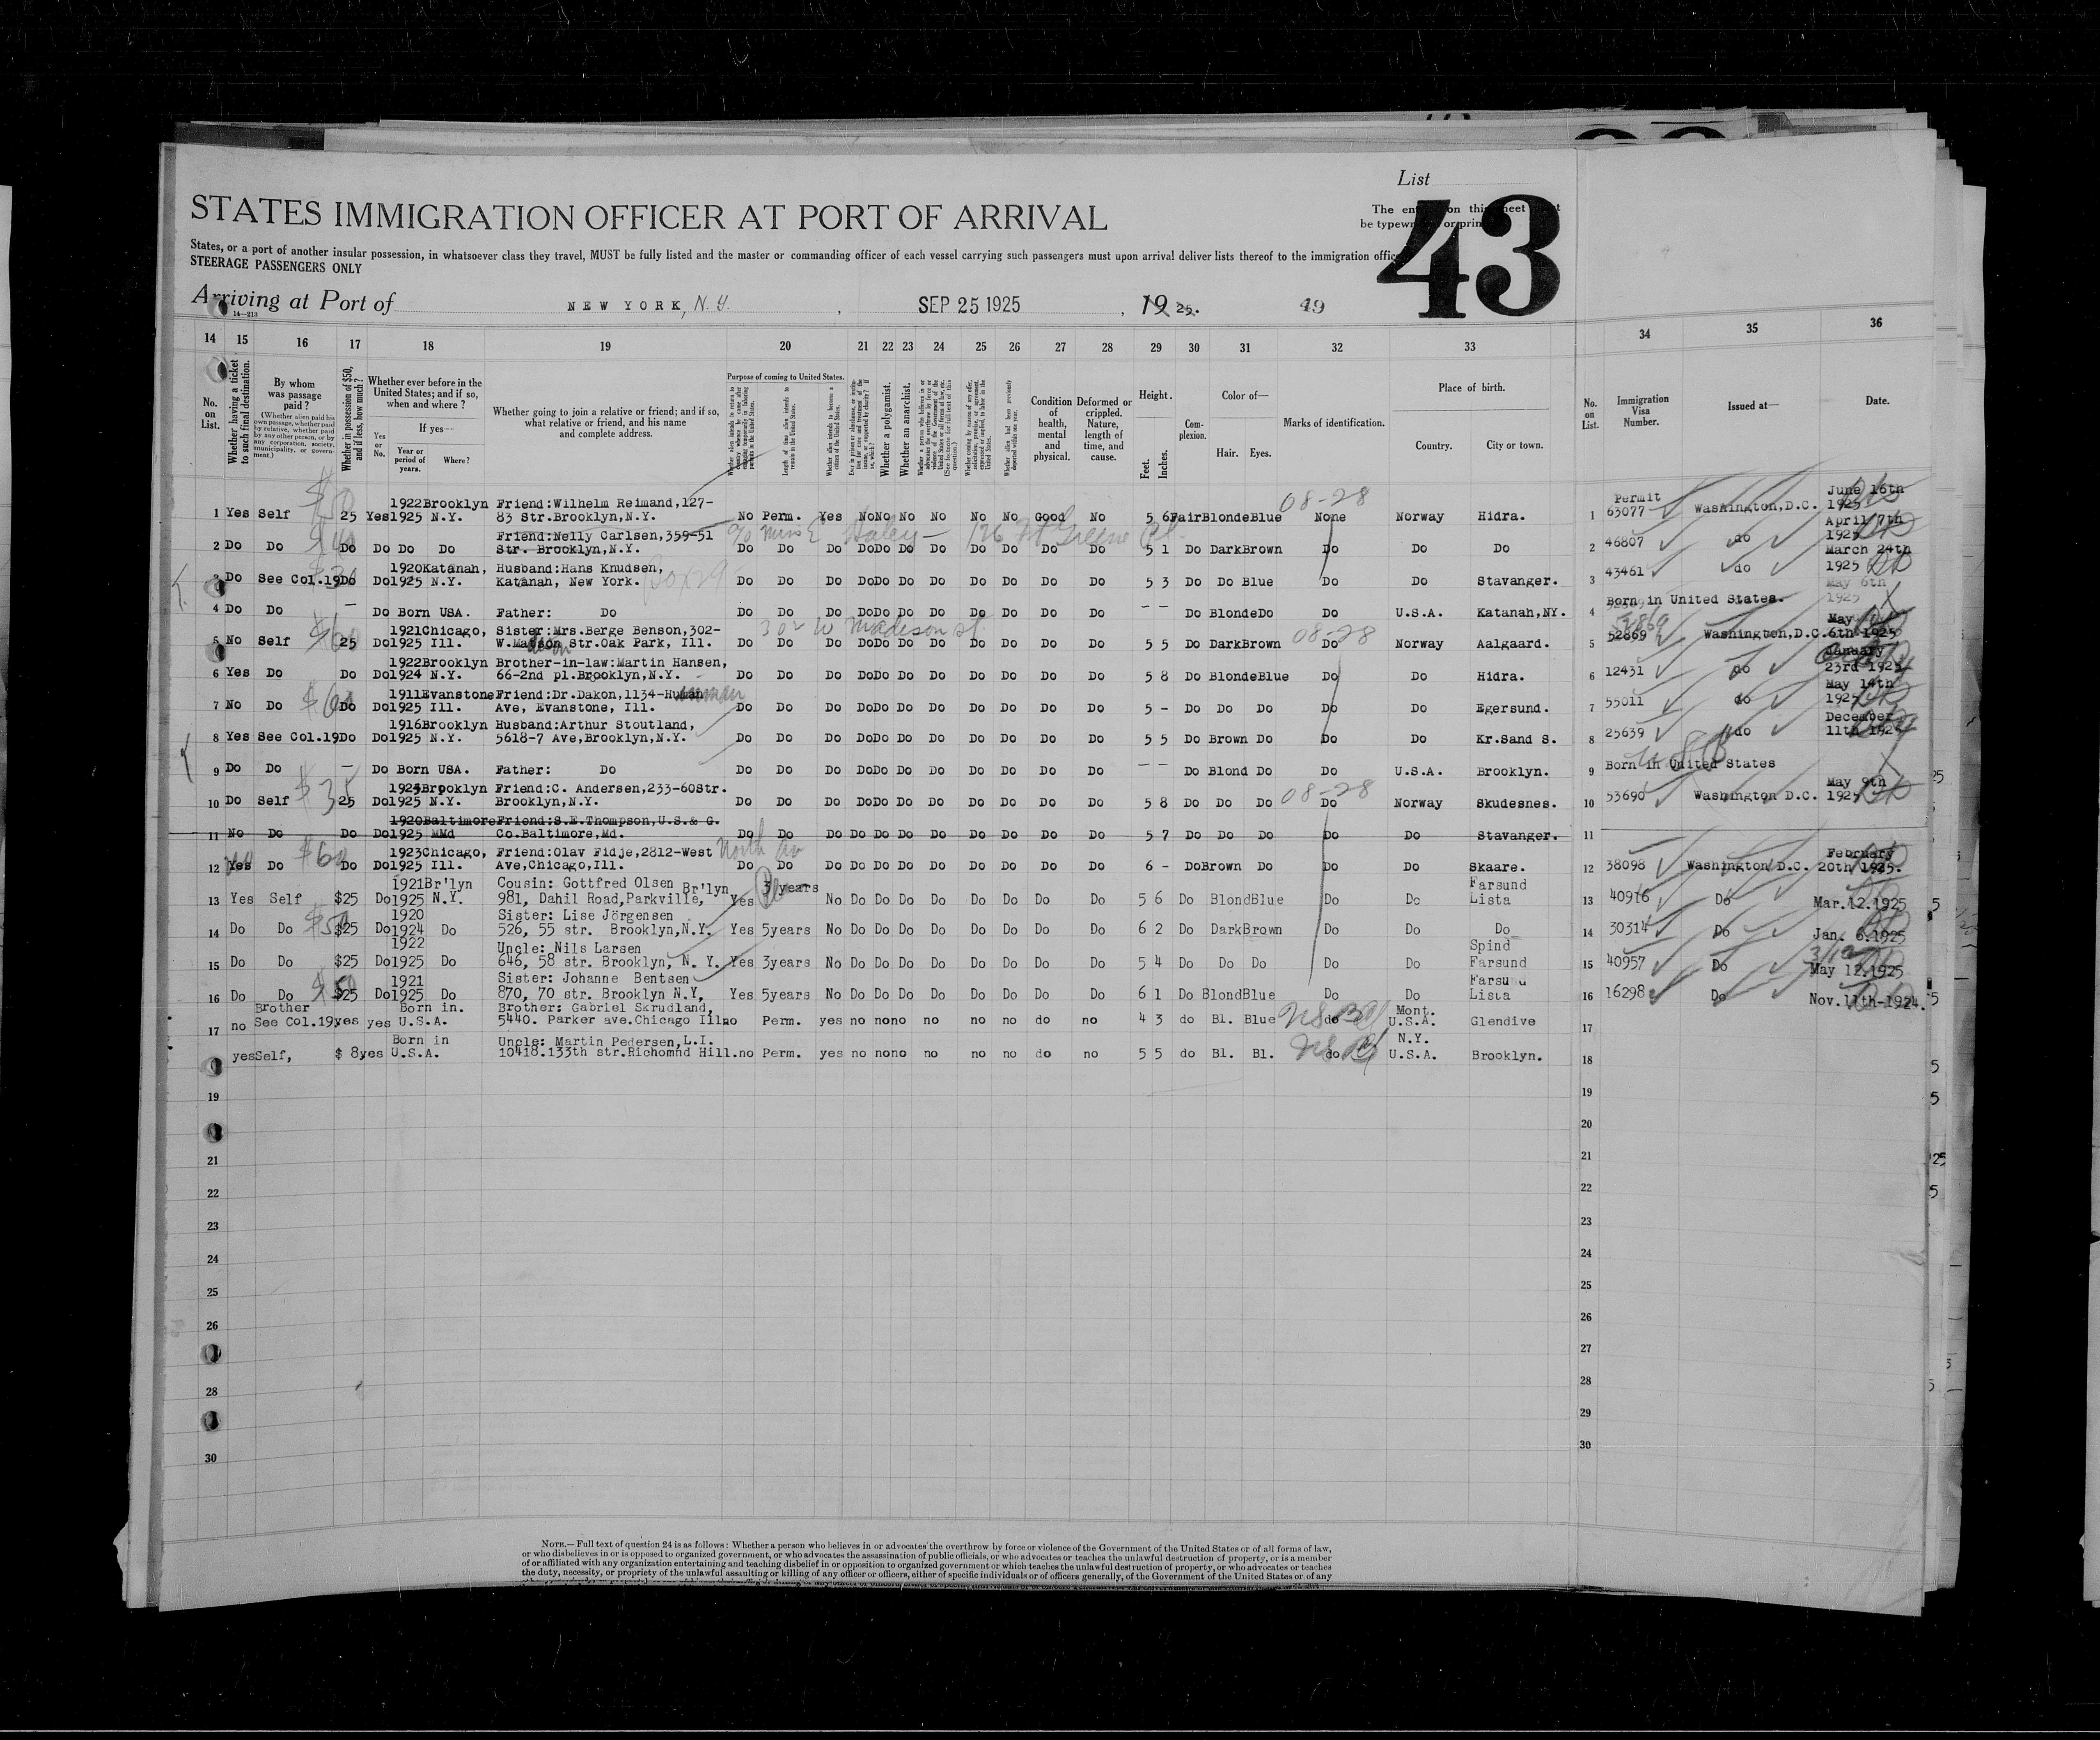 List
STATES IMMIGRATION OFFICER AT PORT OF ARRIVAL
43
States, or a port of another insular possession, in whatsoever class they travel, MUST be fully listed and the master or commanding officer of each vessel carrying such passengers must upon arrival deliver lists thereof to the immigration
STEERAGE PASSENGERS ONLY
Arriving at Port of NEW YORK, N.Y. , SEP 25 1925 , 19 25. 49
14—213
14 15 16 17 18 19 20 21 22 23 24 25 26 27 28 29 30 31 32 33 34 35 36
No. on List.
Whether having a ticket to such final destination.
By whom was passage paid?
(Whether alien paid his own passage, whether paid by relative, whether paid by any other person, or by any corporation, society, municipality, or government.)
Whether in possession of $50, and if less, how much?
Whether ever before in the United States; and if so, when and where?
Yes or No.
If yes—
Year or period of years.
Where?
Whether going to join a relative or friend; and if so, what relative or friend, and his name and complete address.
Purpose of coming to United States.
Length of time alien intends to remain in the United States.
Whether alien intends to become a citizen of the United States.
Whether a polygamist.
Whether an anarchist.
Condition of health, mental and physical.
Deformed or crippled. Nature, length of time, and cause.
Height.
Feet. Inches.
Complexion.
Color of—
Hair. Eyes.
Marks of identification.
Place of birth.
Country. City or town.
No. on List.
Immigration Visa Number.
Issued at—
Date.
08-28
1922Brooklyn Friend:Wilhelm Reimand,127- Permit June 16th
1 Yes Self 25 Yes1925 N.Y. 83 Str.Brooklyn,N.Y. No Perm. Yes NoNo No No No No Good No 5 6FairBlondeBlue None Norway Hidra. 1 63077 Washington,D.C. 1925
Friend:Nelly Carlsen,359-51 April 7th
2 Do Do Do Do Do Do Str. Brooklyn,N.Y. Do Do Do DoDo Do Do Do Do Do Do 5 1 Do DarkBrown Do Do Do 2 46807 do 1925
1920Katanah, Husband:Hans Knudsen, March 24th
3 Do See Col.19Do Do1925 N.Y. Katanah, New York. Do Do Do DoDo Do Do Do Do Do Do 5 3 Do Do Blue Do Do Stavanger. 3 43461 do 1925
May 6th
4 Do Do — Do Born USA. Father: Do Do Do Do DoDo Do Do Do Do Do Do - - Do BlondeDo Do U.S.A. Katanah,NY. 4 Born in United States. 1925
302 W Madison st 08-28
1921Chicago, Sister:Mrs.Berge Benson,302- May
5 No Self 25 Do1925 Ill. W.Madison Str.Oak Park, Ill. Do Do Do DoDo Do Do Do Do Do Do 5 5 Do DarkBrown Do Norway Aalgaard. 5 52869 Washington,D.C.6th 1925
1922Brooklyn Brother-in-law:Martin Hansen, January
6 Yes Do Do Do1924 N.Y. 66-2nd pl.Brooklyn,N.Y. Do Do Do DoDo Do Do Do Do Do Do 5 8 Do BlondeBlue Do Do Hidra. 6 12431 do 23rd 1925
1911EvanstoneFriend:Dr.Dakon,1134- May 14th
7 No Do $60 Do Do1925 Ill. Ave, Evanstone, Ill. Do Do Do DoDo Do Do Do Do Do Do 5 - Do Do Do Do Do Egersund. 7 55011 do 1925
1916Brooklyn Husband:Arthur Stoutland, December
8 Yes See Col.19Do Do1925 N.Y. 5618-7 Ave,Brooklyn,N.Y. Do Do Do DoDo Do Do Do Do Do Do 5 5 Do Brown Do Do Do Kr.Sand S. 8 25639 do 11th 1924
9 Do Do — Do Born USA. Father: Do Do Do Do DoDo Do Do Do Do Do Do - - Do Blond Do Do U.S.A. Brooklyn. 9 Born in United States
08-28
Brooklyn Friend:C. Andersen,233-60Str. May 9th
10 Do Self $35 25 Do1925 N.Y. Brooklyn,N.Y. Do Do Do DoDo Do Do Do Do Do Do 5 8 Do Do Do Do Norway Skudesnes. 10 53690 Washington D.C. 1925
1920BaltimoreFriend:S.E.Thompson,U.S.& G.
11 No Do Do Do1925 MMd Co.Baltimore,Md. Do Do Do Do Do Do Do Do Do Do Do 5 7 Do Do Do Do Do Stavanger. 11
1923Chicago, Friend:Olav Fidje,2812-West North Av February
12 Yes Do $60 Do Do1925 Ill. Ave,Chicago,Ill. Do Do Do Do Do Do Do Do Do Do Do 6 - DoBrown Do Do Do Skaare. 12 38098 Washington D.C. 20th 1925.
1921Br'lyn Cousin: Gottfred Olsen Br'lyn 3 years Farsund
13 Yes Self $25 Do1925 N.Y. 981, Dahil Road,Parkville, Yes No Do Do Do Do Do Do Do Do 5 6 Do BlondBlue Do Do Lista 13 40916 Do Mar.12.1925
1920 Sister: Lise Jörgensen
14 Do Do $25 Do1924 Do 526, 55 str. Brooklyn,N.Y. Yes 5years No Do Do Do Do Do Do Do Do 6 2 Do DarkBrown Do Do Do 14 30314 Do Jan. 6.1925
1922 Uncle: Nils Larsen Spind
15 Do Do $25 Do1925 Do 646, 58 str. Brooklyn, N. Y. Yes 3years No Do Do Do Do Do Do Do Do 5 4 Do Do Do Do Do Farsund 15 40957 Do May 12.1925
1921 Sister: Johanne Bentsen Farsund
16 Do Do $25 Do1925 Do 870, 70 str. Brooklyn N.Y, Yes 5years No Do Do Do Do Do Do Do Do 6 1 Do BlondBlue Do Do Lista 16 16298 Do Nov.11th-1924.
Brother Born in. Brother: Gabriel Skrudland, Mont.
17 no See Col.19yes yes U.S.A. 5440. Parker ave.Chicago Ill.no Perm. yes no nono no no no do no 4 3 do Bl. Blue do U.S.A. Glendive 17
Born in Uncle: Martin Pedersen,L.I. N.Y.
18 yesSelf, $ 8yes U.S.A. 10418.133th str.Richomnd Hill.no Perm. yes no nono no no no do no 5 5 do Bl. Bl. do U.S.A. Brooklyn. 18
19 19
20
21 21
22 22
23 23
24 24
25 25
26 26
27
28 28
29
30 30
NOTE.—Full text of question 24 is as follows: Whether a person who believes in or advocates the overthrow by force or violence of the Government of the United States or of all forms of law,
or who disbelieves in or is opposed to organized government, or who advocates the assassination of public officials, or who advocates or teaches the unlawful destruction of property, or is a member
of or affiliated with any organization entertaining and teaching disbelief in or opposition to organized government or which teaches the unlawful destruction of property, or who advocates or teaches
the duty, necessity, or propriety of the unlawful assaulting or killing of any officer or officers, either of specific individuals or of officers generally, of the Government of the United States or of any